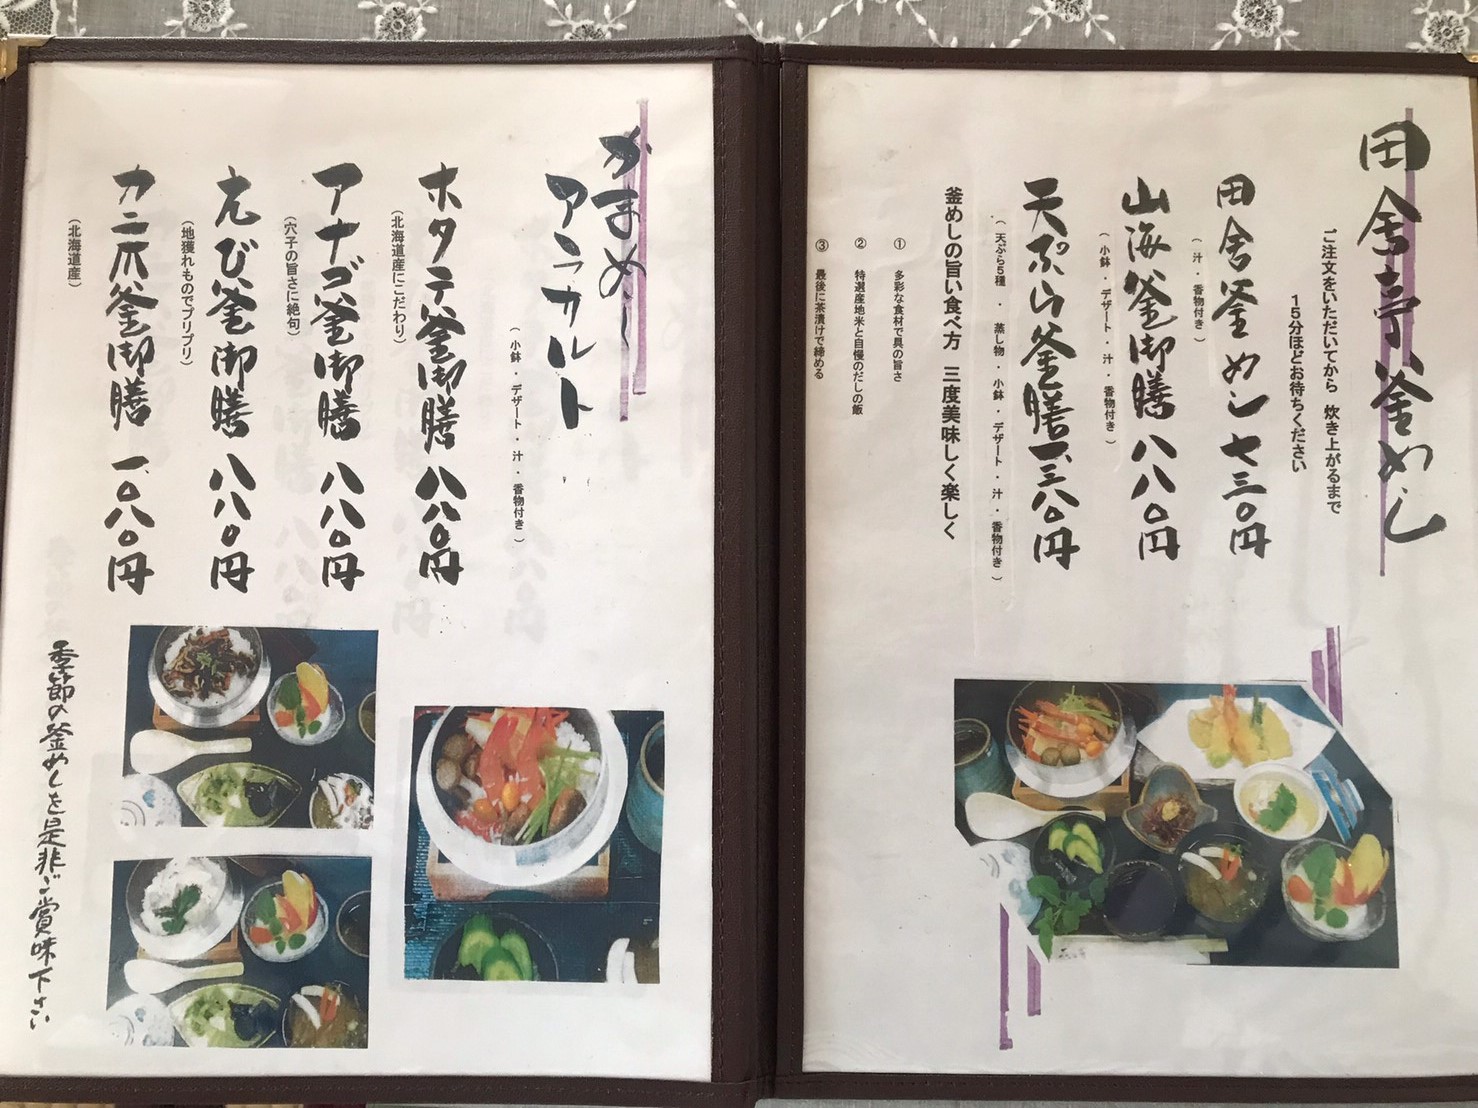 田舎亭釜めし
ご注文をいただいてから 炊き上がるまで
15分ほどお待ちください
田舎釜めし 七三〇円
（ 汁・香物付き ）
山海釜御膳 八八〇円
（ 小鉢・デザート・汁・香物付き ）
天ぷら釜膳 一、三八〇円
（ 天ぷら5種 ・ 蒸し物 ・ 小鉢 ・ デザート ・ 汁 ・ 香物付き ）
釜めしの旨い食べ方 三度美味しく楽しく
① 多彩な食材で具の旨さ
② 特選産地米と自慢のだしの飯
③ 最後に茶漬けで締める
かまめし
アラカルト
（ 小鉢・デザート・汁・香物付き ）
ホタテ釜御膳 八八〇円
（北海道産にこだわり）
アナゴ釜御膳 八八〇円
（穴子の旨さに絶句）
えび釜御膳 八八〇円
（地獲れものでプリプリ）
カニ爪釜御膳 一、〇八〇円
（北海道産）
季節の釜めしを是非ご賞味下さい